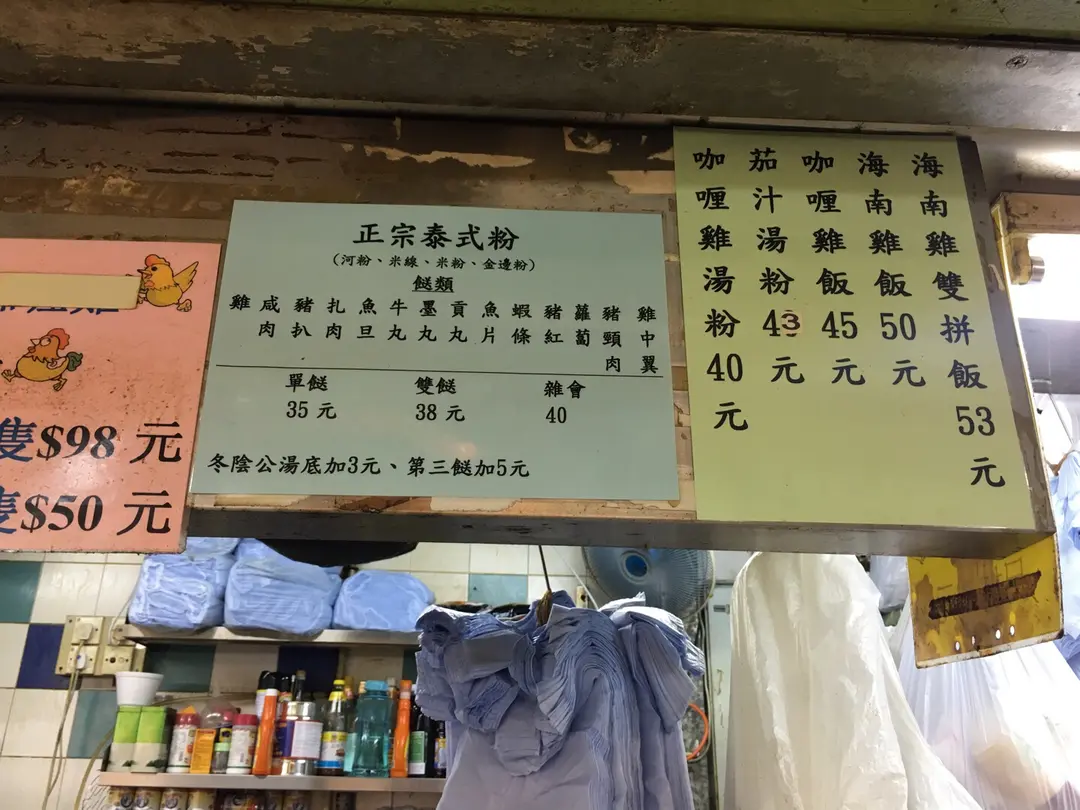 隻$98 元
隻$50 元
正宗泰式粉
(河粉、米線、米粉、金邊粉)
餸類
雞
咸肉
豬扒
扎肉
魚旦
牛丸
墨丸
貢丸
魚片
蝦條
豬紅
蘿蔔
豬頸肉
雞中翼
單餸 雙餸 雜會
35 元 38 元 40
冬陰公湯底加3元、第三餸加5元
咖喱雞湯粉40元
茄汁湯粉43元
咖喱雞飯45元
海南雞飯50元
海南雞雙拼飯53元